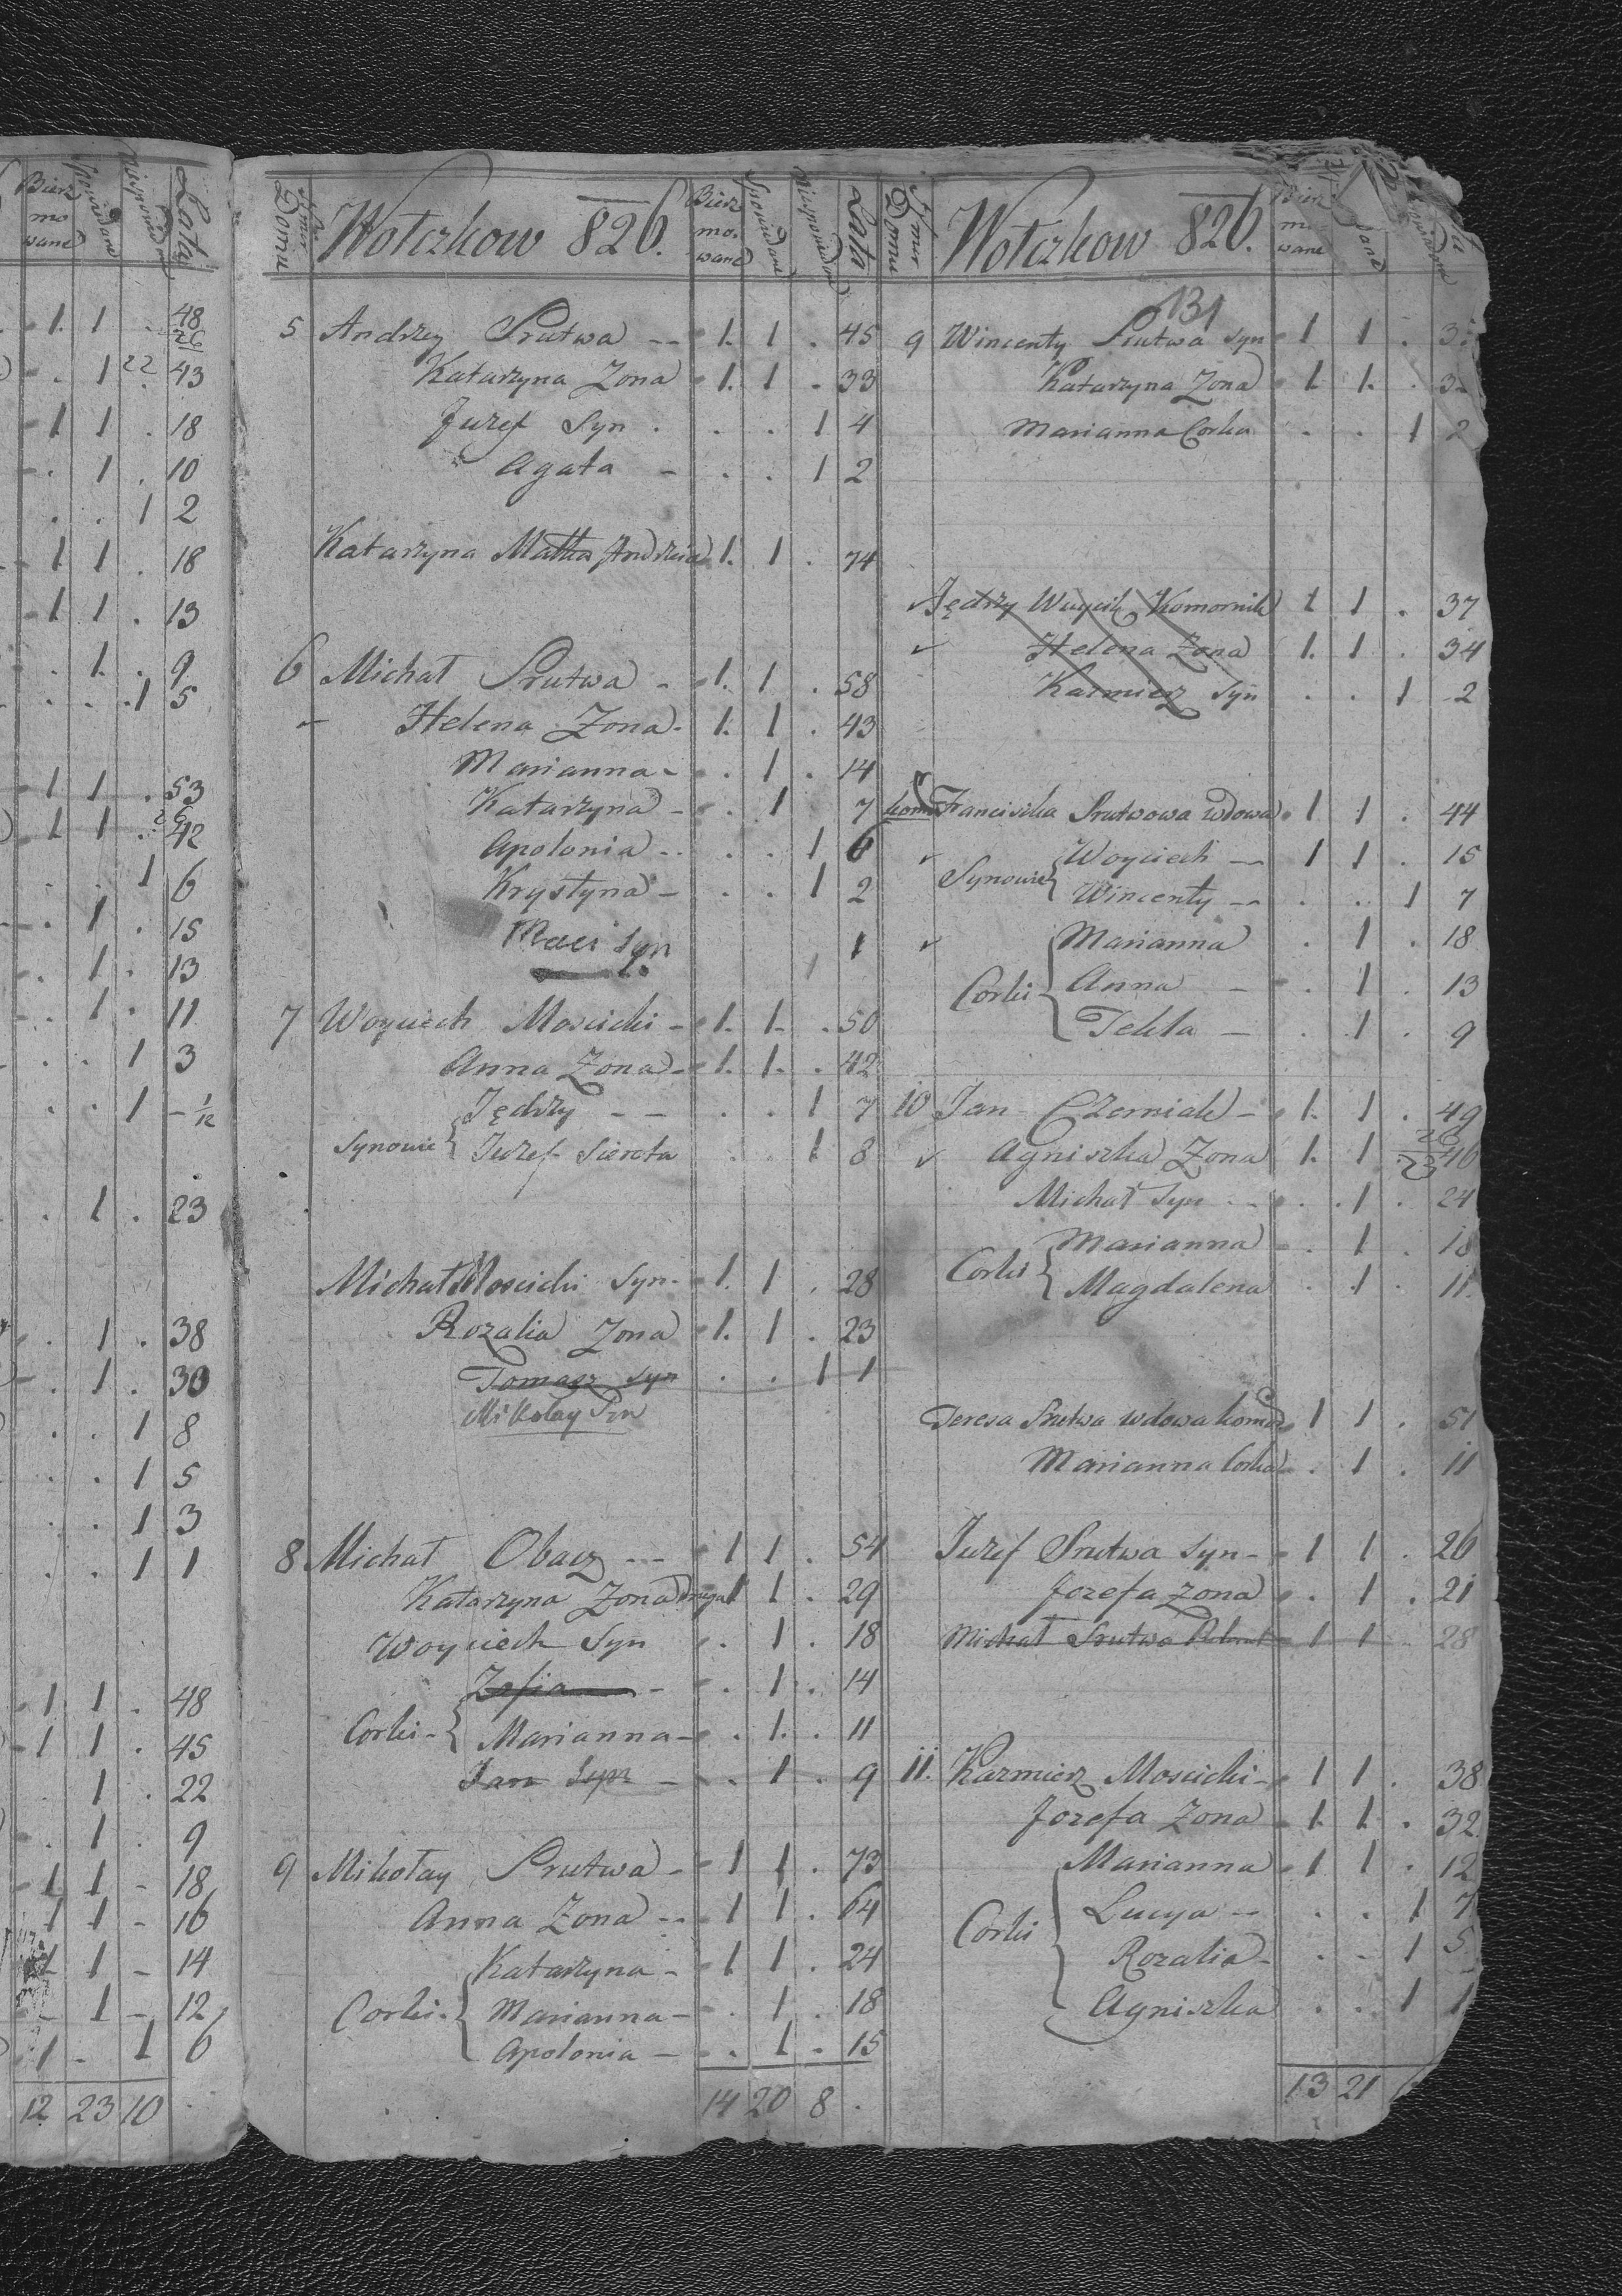 Bierz mo wane
Latu
1. 1 . 48
26
. 1 22 43
1 1 . 18
. 1 . 10
. . 1 2
1 1 . 18
1 1 . 13
. 1. . 9
. . 1 5
1 1 . 53
26
1 1 . 42
. . 1 6
. 1 . 15
. 1 . 13
. 1 . 11
. . 1 3
. . 1 - 1/12
. 1 . 23
. 1 . 38
. 1 . 30
. . 1 8
. . 1 5
. . 1 3
. . 1 1
1 1 . 48
1 1 . 45
1 . 22
. 1 . 9
1 1 - 18
1 1 - 16
1 1 - 14
- 1 - 12
1 . 1 6
12 23 10 .
Nmer Domu Wotczkow 826. Bierz mo. wane Spowiadane Niespowiadane Lata
5 Andrzey Prutwa -- 1. 1 . 45
Katarzyna Zona 1. 1 . 33
Juzef Syn . . . 1 4
Agata - . . 1 2
Katarzyna Matka Andrzeia 1. 1 . 74
6 Michał Prutwa - 1. 1 . 58
Helena Zona - 1. 1 . 43
Marianna - . 1 . 14
Katarzyna - . 1 7
Apolonia -- . . 1 6
Krystyna - . . 1 2
Maci Syn 1 1
7 Woyciech Moscicki - 1. 1. . 50
Anna Zona - 1. 1. . 42
Synowie { Jędrzy - - . . 1 7
Juzef Sierota . . 1 8
Michał Moscicki Syn - 1. 1 . 28
Rozalia Zona 1. 1 . 23
Tomasz Syn . . 1 1
Mikołay Syn
8 Michał Obacz --- 1 1 . 54
Katarzyna Zona druga 1 1 . 29
Woyciech Syn . 1 . 18
Corki - { Zofia - . 1 . 14
Marianna - . 1. . 11
Jan Syn - . 1 . 9
9 Mikołay Prutwa - 1 1 . 73
Anna Zona -- 1 1 . 64
Corki. { Katarzyna - 1 1 . 24
Marianna - . 1 . 18
Apolonia - . 1 . 15
14 20 8 .
Nmer Domu Wotczkow 826. Bierz mo wane
131
9 Wincenty Prutwa Syn 1 1 .
Katarzyna Zona 1 1. .
Marianna Corka . . 1 2
Jędrzy Wuycik Komornik 1 1 . 37
Helena Zona 1. 1 . 34
Kazmierz Syn . . 1 2
kom Franciszka Prutwowa wdowa 1 1 . 44
Synowie { Woyciech - 1 1 . 15
Wincenty -- . . 1 7
Corki { Marianna . 1 . 18
Anna - . 1 . 13
Tekla - . 1 . 9
10 Jan Czerniak - 1. 1 . 49
Agniszka Zona 1. 1 . 26 23 40
Michał Syn -- . 1 . 24
Corki { Marianna . 1 . 18
Magdalena . 1 . 11.
Teresa Prutwa wdowa komor 1 1 . 51
Marianna Corka . 1 . 11
Juzef Prutwa Syn - 1 1 . 26
Jozefa Zona . 1 . 21
Michał Prutwa 1 1 . 28
11. Kazmierz Moscicki - 1 1 . 38
Jozefa Zona 1. 1. . 32.
Corki { Marianna 1 1 . 12
Lucya -- . . 1 7
Rozalia - . - 1 5
Agniszka . . 1 1
13 21